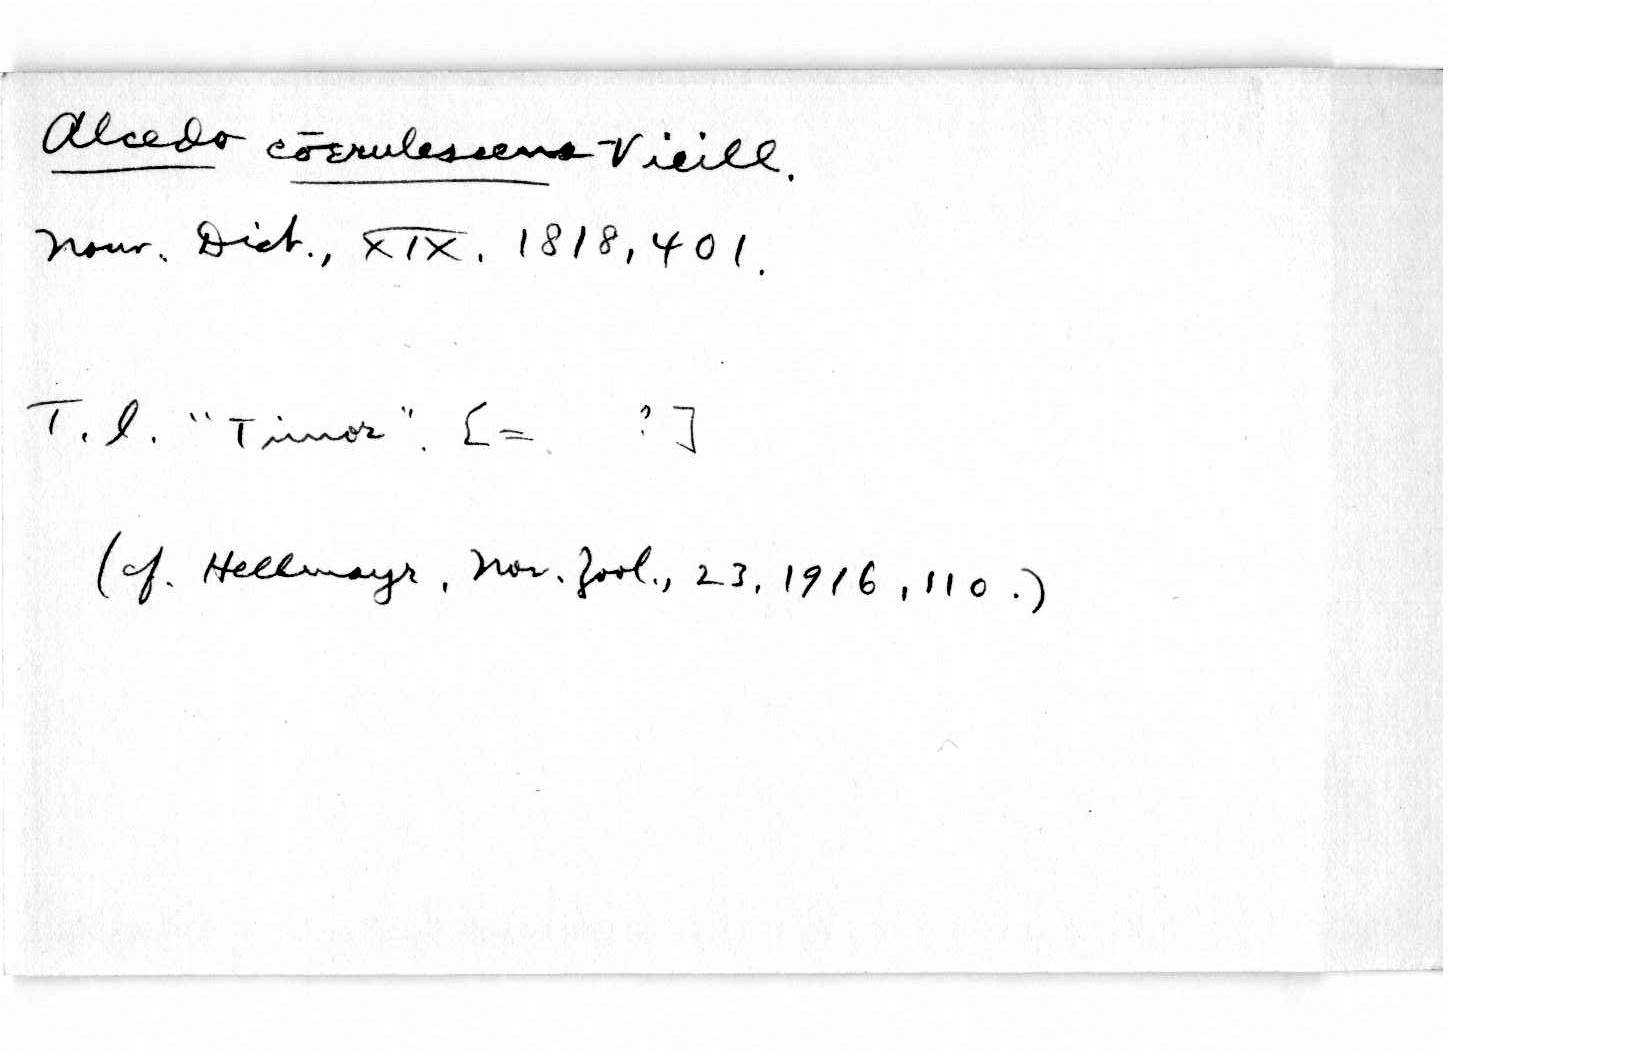 Alcedo cōerulescens Vieill.
Nouv. Dict., XIX. 1818, 401.
T. l. "Timor". [= ?]
(cf. Hellmayr, Nov. Zool., 23, 1916, 110.)